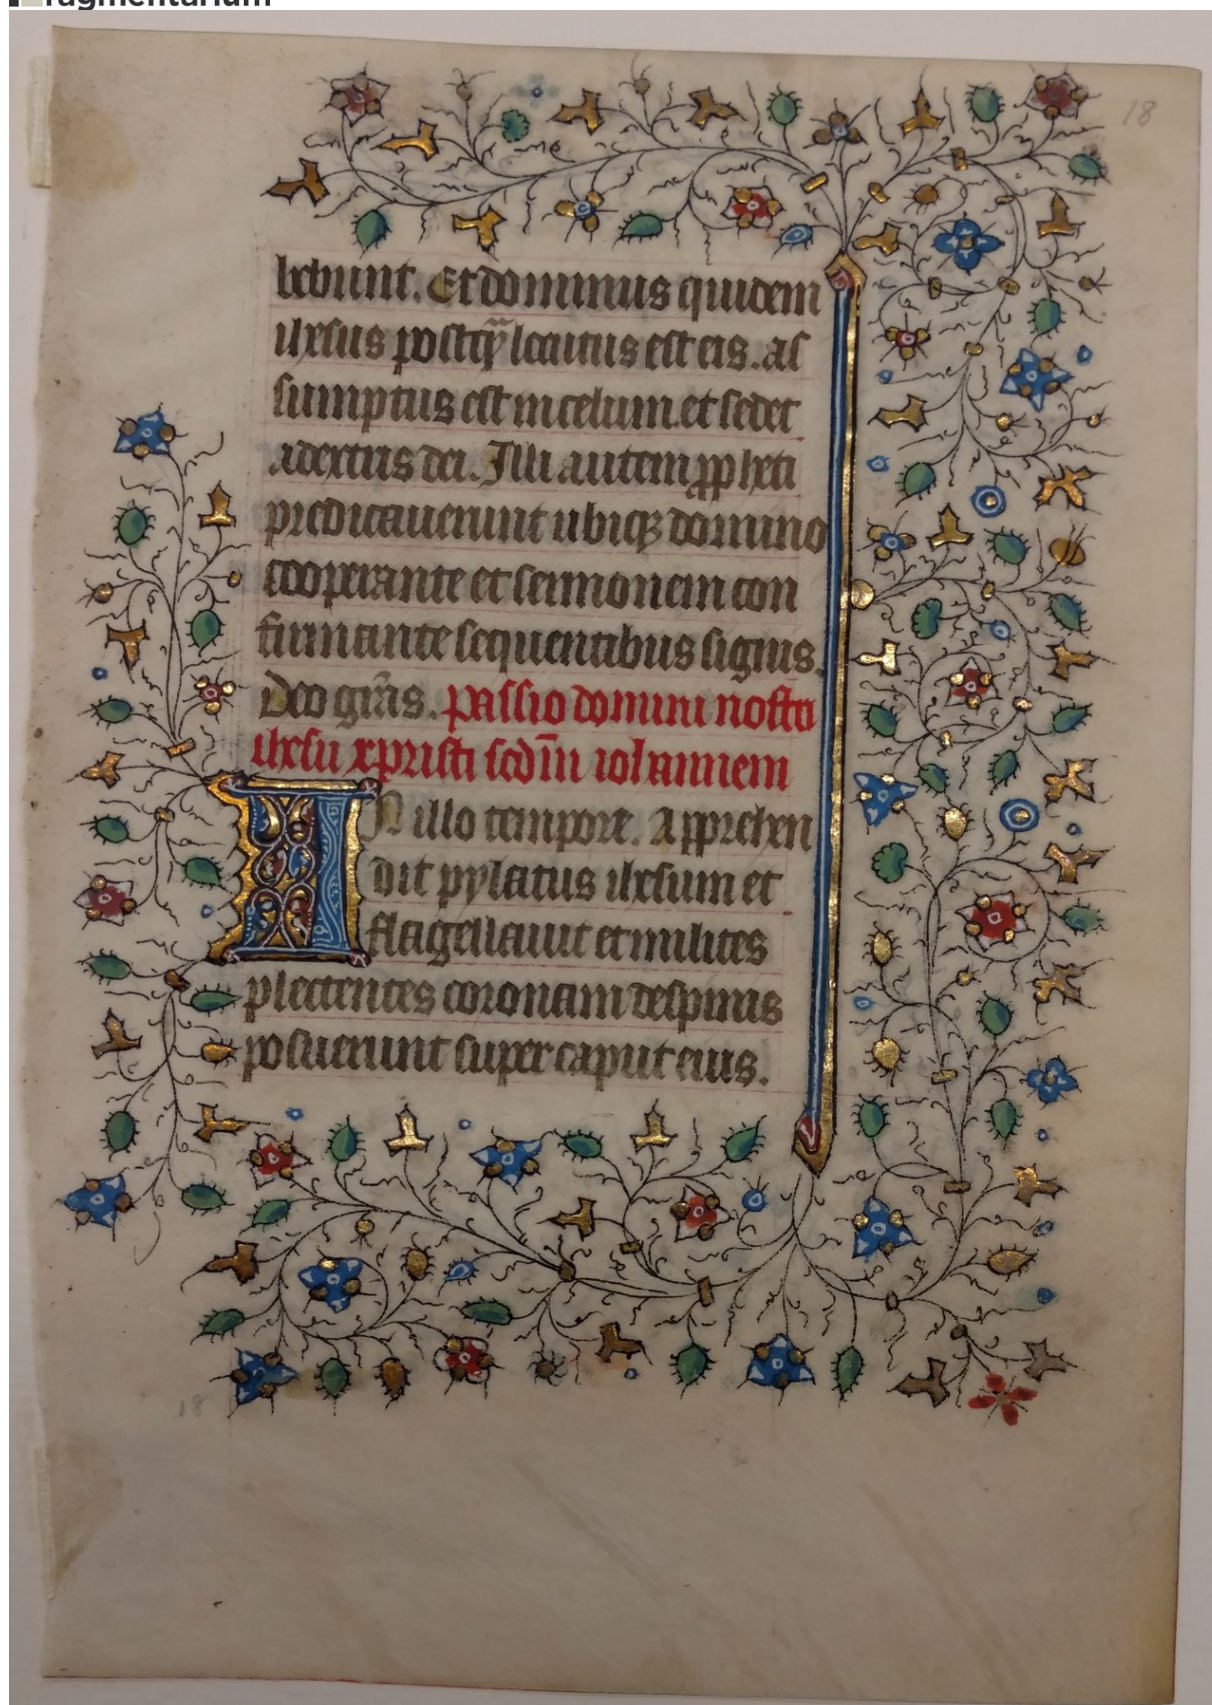 fragmentarium
18
lebunt. Et dominus quidem
ihesus postq̃ locutus est eis. as
sumptus est in celum. et sedet
adextris dei. Illi autem ꝓpheti
predicauerunt ubiqꝫ domino
cooperante et sermonem con
firmante sequentibus signis.
Deo gr̃as. passio domini nostri
ihesu xpristi scd̃m iohannem
IN illo tempore. Apprehen
dit pylatus ihesum et
flagellauit et milites
plectentes coronam de spinis
posuerunt super caput eius.
18